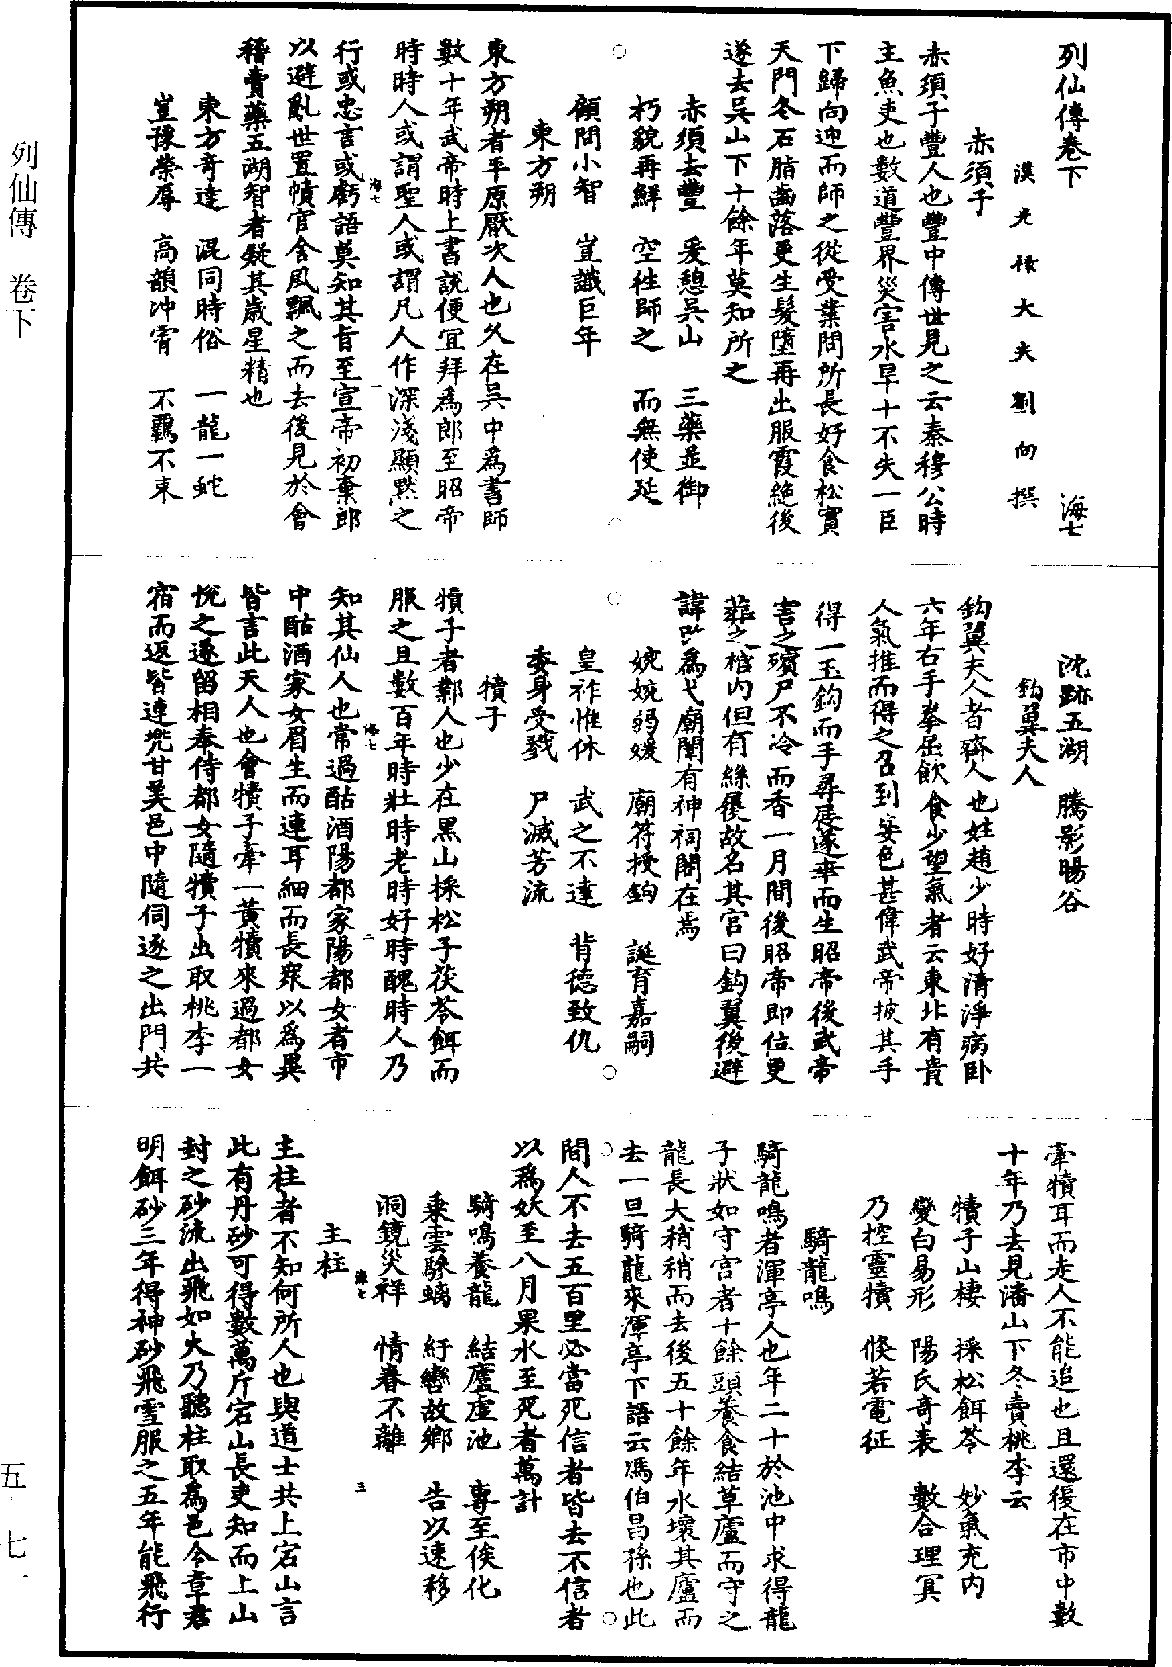 列仙傳卷下　海七
漢光祿大夫劉向撰
赤須子
赤須子豐人也豐中傳世見之云秦穆公時
主魚吏也數道豐界災害水旱十不失一臣
下歸向迎而師之從受業問所長好食松實
天門冬石脂齒落更生髮墮再出服霞絶後
遂去吳山下十餘年莫知所之
赤須去豐　爰憩吳山　三藥並御
朽貌再鮮　空往師之　而無使延
顧問小智　豈識巨年
東方朔
東方朔者平原厭次人也久在吳中爲書師
數十年武帝時上書說便宜拜爲郎至昭帝
時時人或謂聖人或謂凡人作深淺顯默之
行或忠言或戲語莫知其旨至宣帝初棄郎
以避亂世置幘官舍風飄之而去後見於會
稽賣藥五湖智者疑其歲星精也
東方奇達　混同時俗　一龍一蛇
豈豫榮辱　高韻沖霄　不羈不束
沈跡五湖　騰影暘谷
鈎翼夫人
鈎翼夫人者齊人也姓趙少時好清淨病卧
六年右手拳屈飲食少望氣者云東北有貴
人氣推而得之召到姿色甚偉武帝披其手
得一玉鈎而手尋展遂幸而生昭帝後武帝
害之殯尸不冷而香一月間後昭帝即位更
葬之棺內但有絲履故名其宮曰鈎翼後避
諱改爲弋廟闈有神祠閣在焉
婉婉弱媛　廟符授鈎　誕育嘉嗣
皇祚惟休　武之不達　背德致仇
委身受戮　尸滅芳流
犢子
犢子者鄴人也少在黑山採松子茯苓餌而
服之且數百年時壯時老時好時醜時人乃
知其仙人也常過酤酒陽都家陽都女者市
中酤酒家女眉生而連耳細而長衆以爲異
皆言此天人也會犢子牽一黃犢來過都女
悅之遂留相奉侍都女隨犢子出取桃李一
宿而返皆連兠甘美邑中隨伺逐之出門共
牽犢耳而走人不能追也且還復在市中數
十年乃去見潘山下冬賣桃李云
犢子山棲　採松餌苓　妙氣充內
變白易形　陽氏奇表　數合理冥
乃控靈犢　倐若電征
騎龍鳴
騎龍鳴者渾亭人也年二十於池中求得龍
子狀如守宮者十餘頭養食結草廬而守之
龍長大稍稍而去後五十餘年水壞其廬而
去一旦騎龍來渾亭下語云馮伯昌孫也此
間人不去五百里必當死信者皆去不信者
以爲妖至八月果水至死者萬計
騎鳴養龍　結廬虛池　專至俟化
乘雲驂螭　紆轡故鄉　告以速移
洞鏡災祥　情眷不離
主柱
主柱者不知何所人也與道士共上宕山言
此有丹砂可得數萬斤宕山長吏知而上山
封之砂流出飛如火乃聽柱取爲邑令章君
明餌砂三年得神砂飛雪服之五年能飛行
列仙傳　卷下
五　七
海七　一
海七　二
海七　三